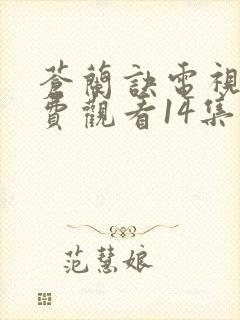 蒼蘭訣電視
費觀看14集
范慧娘